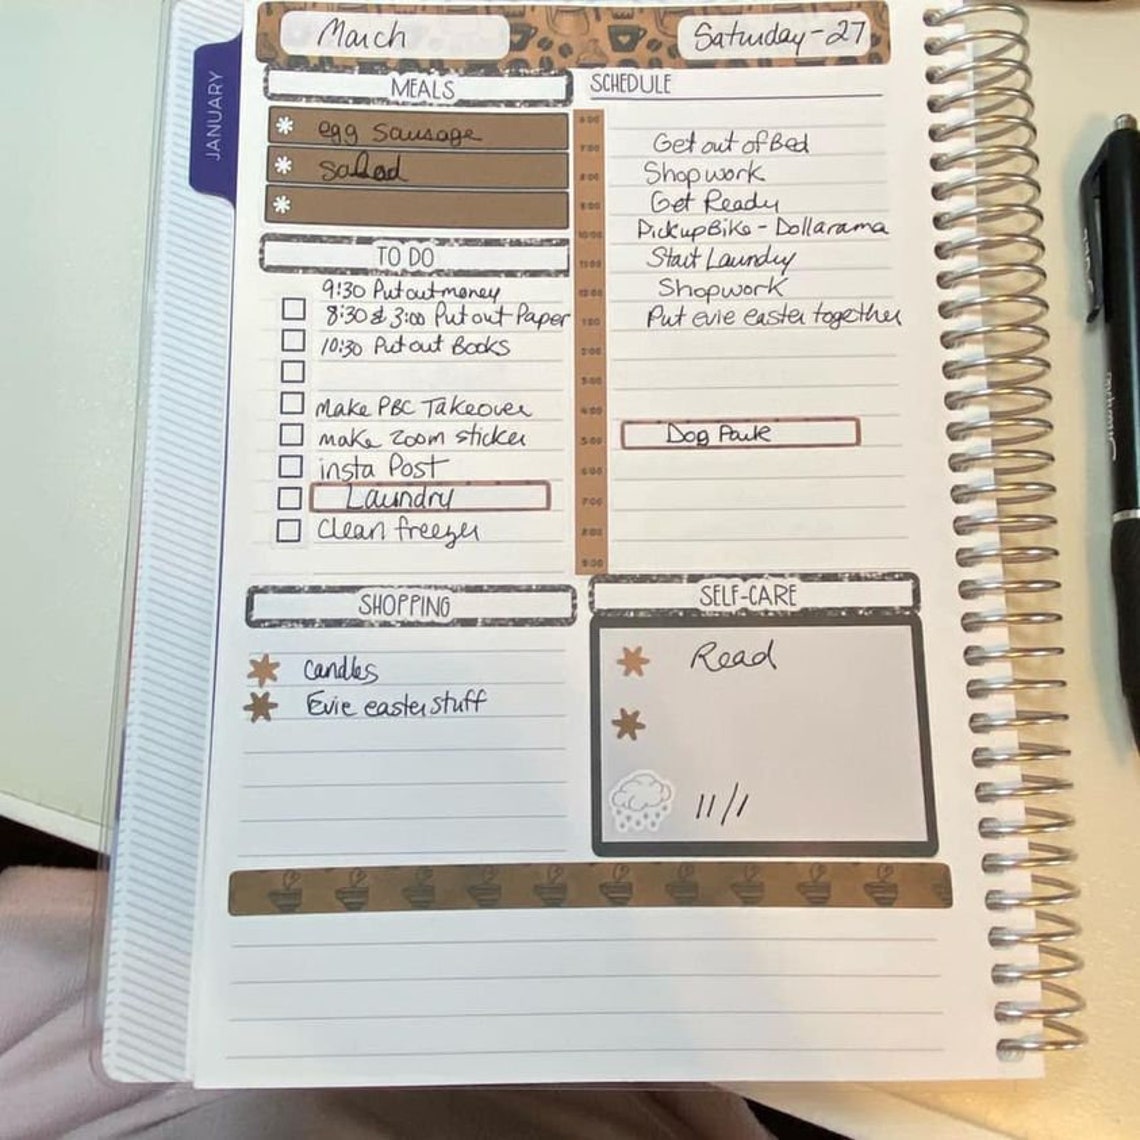 March
Saturday-27
JANUARY
MEALS
egg sausage
salad
TO DO
9:30 Put out money
8:30 & 3:00 Put out Paper
10:30 Put out Books
make PBC Takeover
make zoom sticker
insta Post
Laundry
Clean freezer
SCHEDULE
6:00
7:00 Get out of Bed
8:00 Shop work
9:00 Get Ready
10:00 Pickup Bike - Dollarama
11:00 Start Laundry
12:00 Shop work
1:00 Put evie easter together
2:00
3:00
4:00
5:00 Dog Park
6:00
7:00
8:00
9:00
SHOPPING
Candles
Evie easter stuff
SELF-CARE
Read
11/1